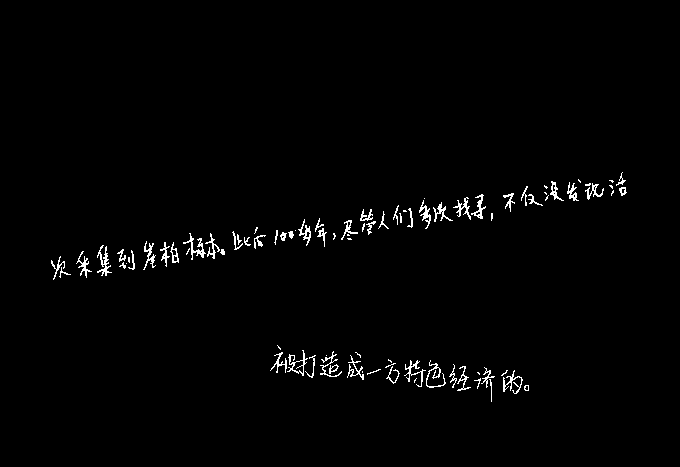 次采集到崖柏标本。此后100多年,尽管人们多次找寻,不仅没发现活
被打造成一方特色经济的。